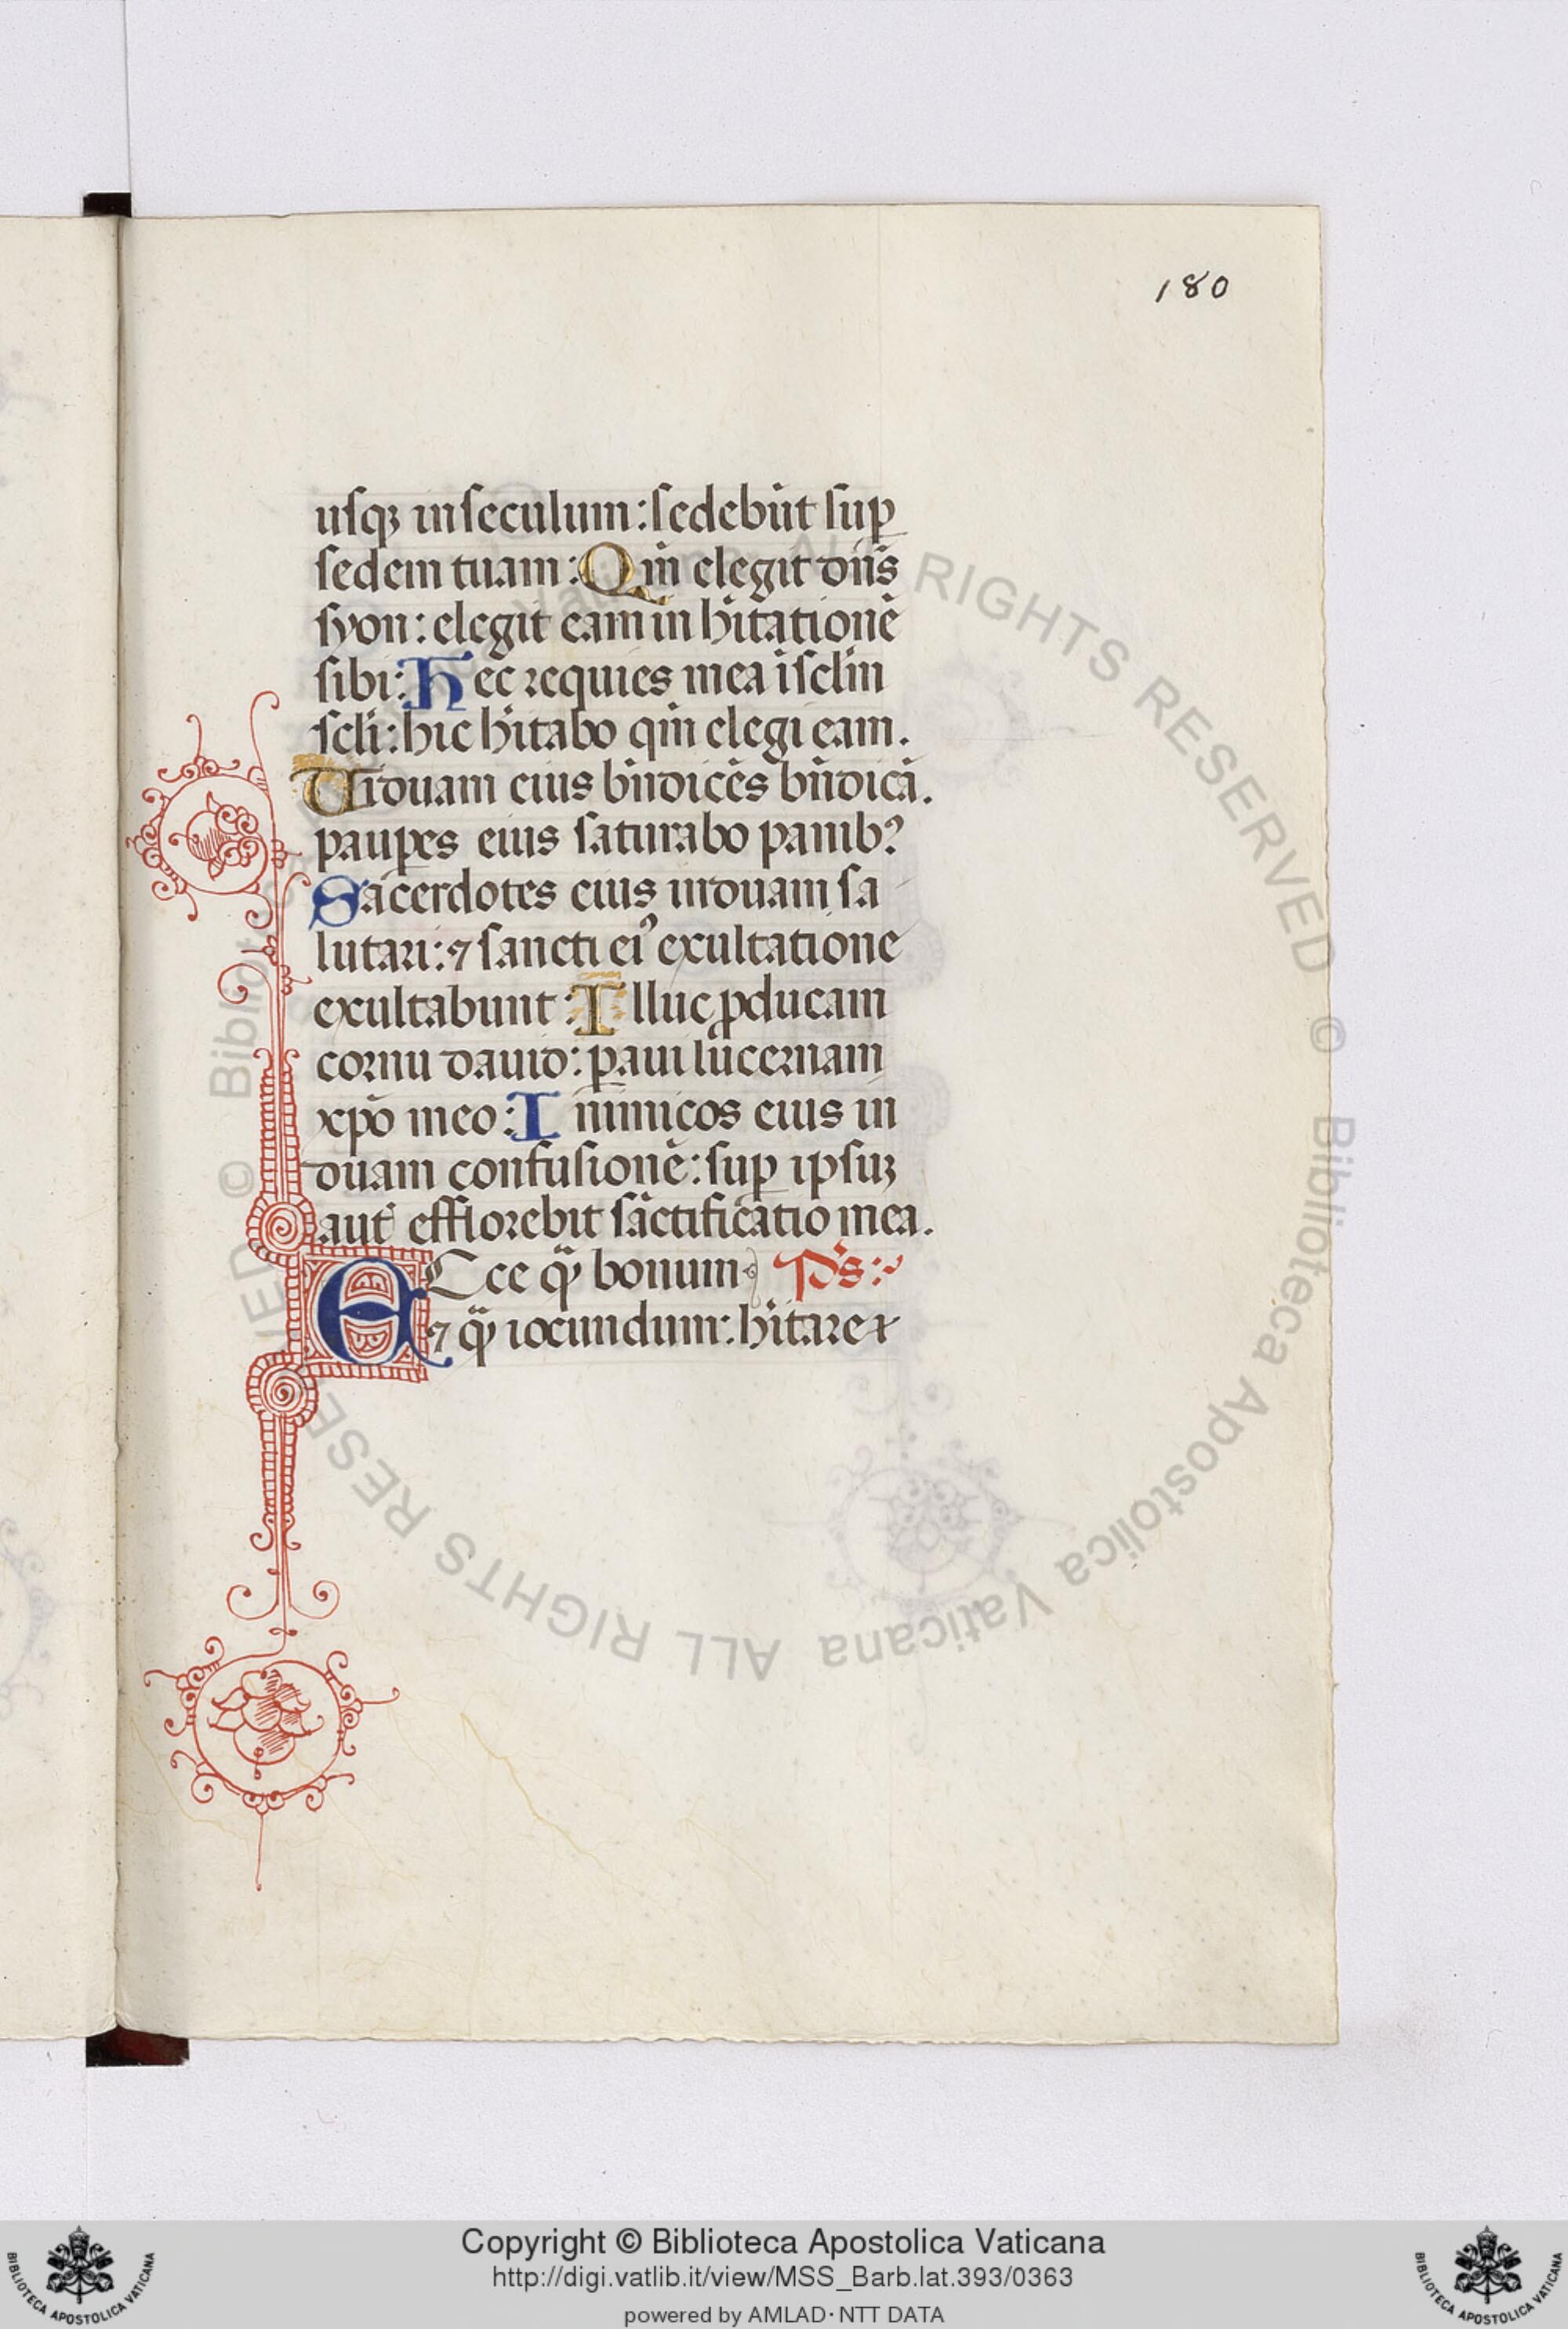 180
usqꝫ in seculum: sedebūt suꝑ
sedem tuam: Qm̄ elegit dn̄s
syon: elegit eam in hītationē
sibi: Hec requies mea ī sclm̄
scli: hic hītabo qm̄ elegi eam.
Uiduam eius bn̄dicēs bn̄dicā.
pauꝑes eius saturabo panibꝰ
Sacerdotes eius induam sa
lutari: ⁊ sancti eiꝰ exultatione
exultabunt: Illuc ꝓducam
cornu dauid: ꝑaui lucernam
xpo̅ meo: Inimicos eius in
duam confusionē: suꝑ ipsuꝫ
aut̄ efflorebit sāctificatio mea.
ECce qͣ̄ bonum Ps:
⁊ qͣ̄ iocundum: hītare
© Biblioteca Apostolica Vaticana ALL RIGHTS RESERVED © Biblioteca Apostolica Vaticana ALL RIGHTS RESERVED
Copyright © Biblioteca Apostolica Vaticana
http://digi.vatlib.it/view/MSS_Barb.lat.393/0363
powered by AMLAD · NTT DATA
BIBLIOTECA APOSTOLICA VATICANA
BIBLIOTECA APOSTOLICA VATICANA